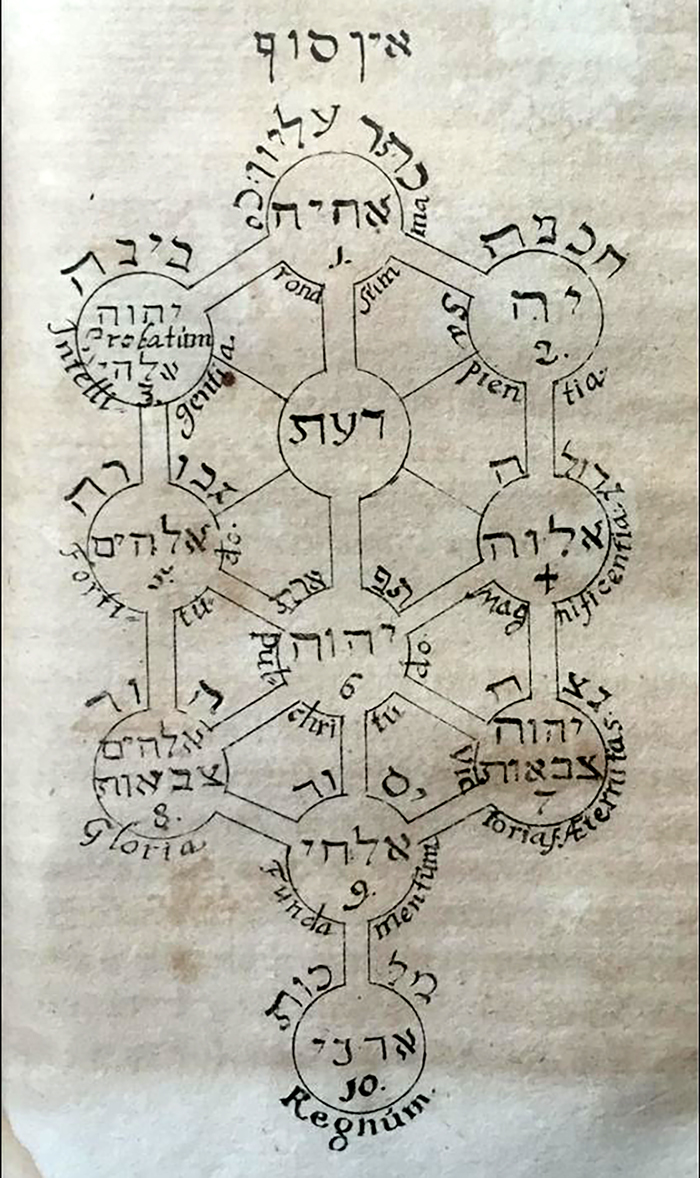 אין סוף
כתר עליון
אהיה
1.
Corona Summa
בינה
יהוה
Probatúm
אלהי
3.
Intelligentia
חכמה
יה
2.
Sapientia
דעת
גבורה
אלהים
Fortitúdo.
גדולה
אלוה
4
Magnificentia
תפארת
יהוה
6
chritudo.
אלהים
צבאות
8.
Gloria
נצח
יהוה
צבאות
7
Victoria & Æternitas.
אלחי
9.
Fundamentúm
מלכות
אדני
10.
Regnúm.